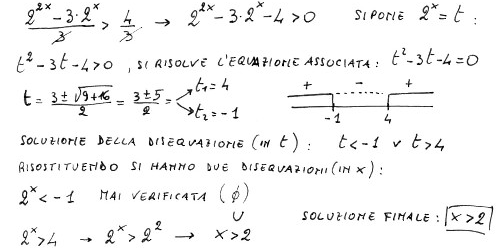 (2^{2x} - 3·2^x)/3 > 4/3 → 2^{2x} - 3·2^x - 4 > 0 SI PONE 2^x = t :
t² - 3t - 4 > 0 , SI RISOLVE L'EQUAZIONE ASSOCIATA : t² - 3t - 4 = 0
t = (3 ± √(9+16))/2 = (3 ± 5)/2 = t₁ = 4 t₂ = -1 + - + -1 4
SOLUZIONE DELLA DISEQUAZIONE (IN t) : t < -1 ∨ t > 4
RISOSTITUENDO SI HANNO DUE DISEQUAZIONI (IN x) :
2^x < -1 MAI VERIFICATA (∅)
∪
2^x > 4 → 2^x > 2² → x > 2 SOLUZIONE FINALE : x > 2